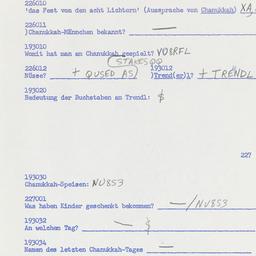 226010
'das Fest von den acht Lichtern' (Aussprache von Chanukkah) XA
226011
)Chanukkah-Männchen bekannt? —
193010
Womit hat man an Chanukkah gespielt? VÜBRFL
(STAKES QQ
226012 193012
Nüsse? + QUSED AS) )Trend(er)l? + TRĒNDL
193020
Bedeutung der Buchstaben am Trendl: $
227
193030
Chanukkah-Speisen: NU8S3
227001
Was haben Kinder geschenkt bekommen? —/NU8S3
193032
An welchem Tag? — $
193034
Namen des letzten Chanukkah-Tages —